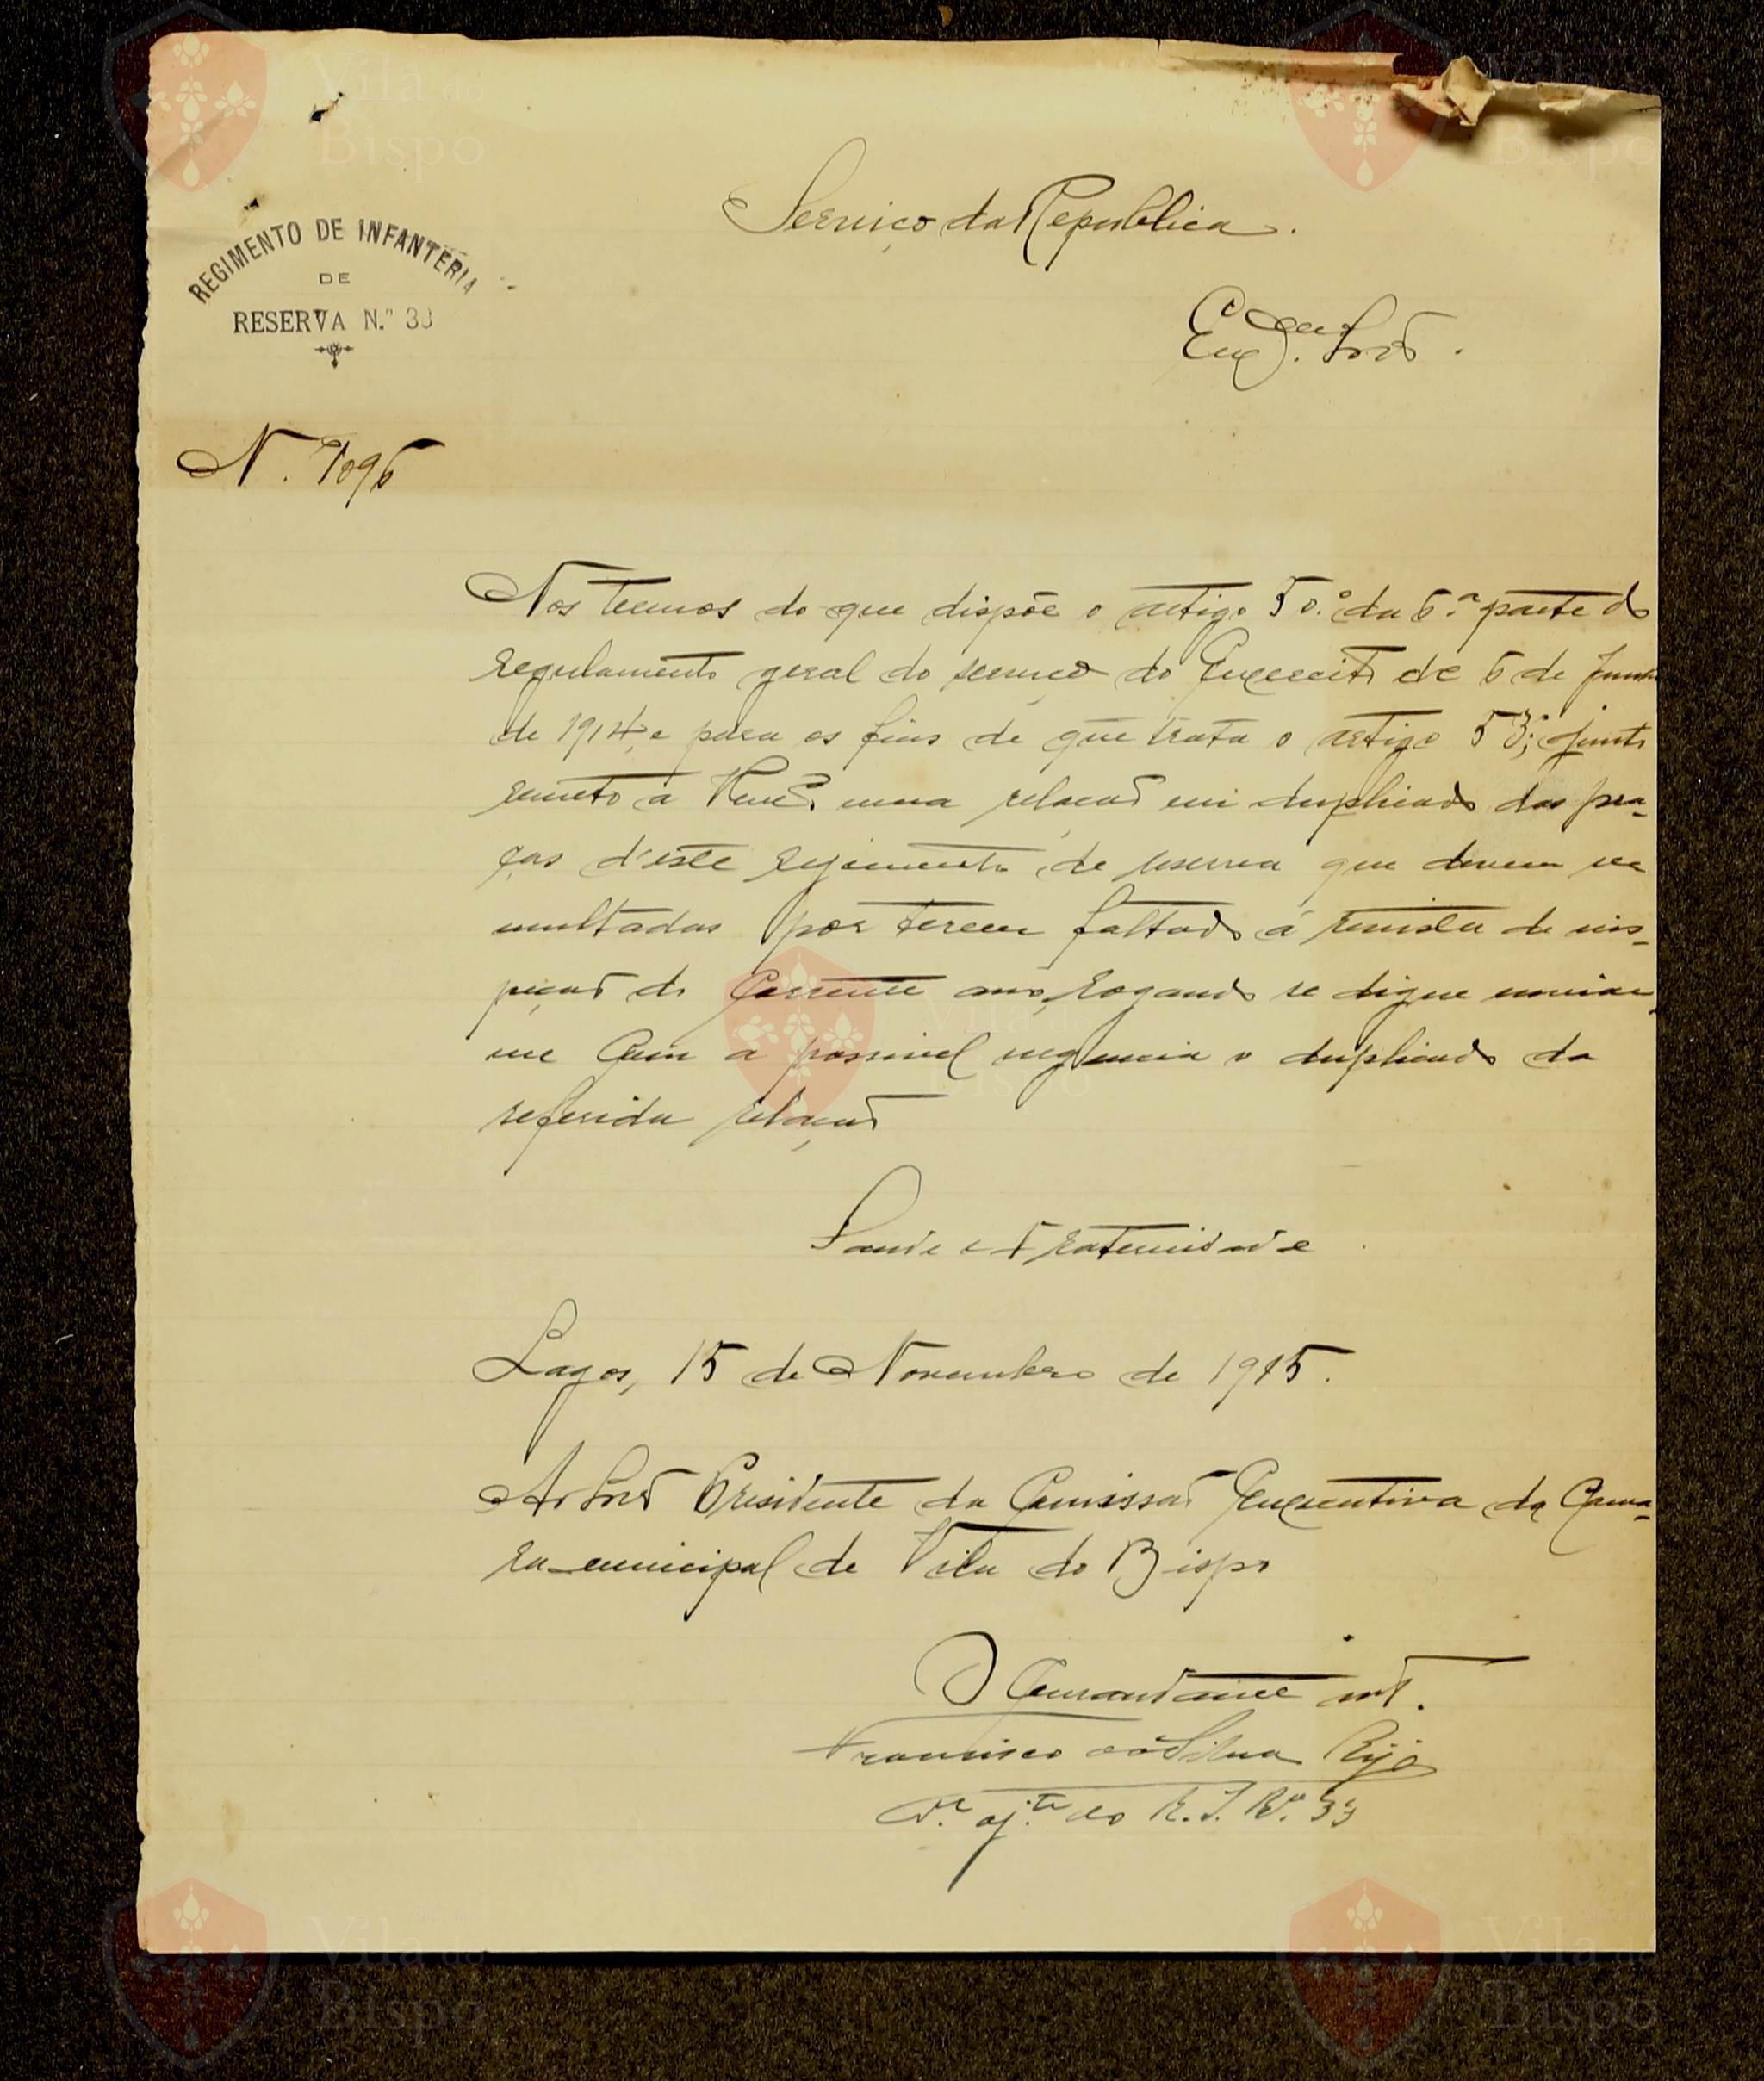 Vila do
Bispo
Vila do
Bispo
Serviço da Republica.
REGIMENTO DE INFANTERIA
DE
RESERVA N.º 33
Ex.mo Snr.
N. 1096
Nos termos do que dispõe o artigo 50.º da 6.ª parte do
regulamento geral do serviço do Exercito de 6 de Junho
de 1914, e para os fins de que trata o artigo 53.º; junto
remeto a V. Ex.ª uma relação em duplicado das pra-
ças d'este regimento de reserva que devem ser
multadas por terem faltado á revista de ins-
peção do corrente ano, rogando se digne enviar-
me com a possivel urgencia o duplicado da
referida relação
Vila do
Bispo
Saude e Fraternidade
Lagos, 15 de Novembro de 1915.
Ao Snr. Presidente da Comissão Executiva da Cama-
ra municipal de Vila do Bispo
O Comandante int.
Francisco da Silva Rijo
aj.te do R. I. R. n.º 33
Vila do
Bispo
Vila do
Bispo